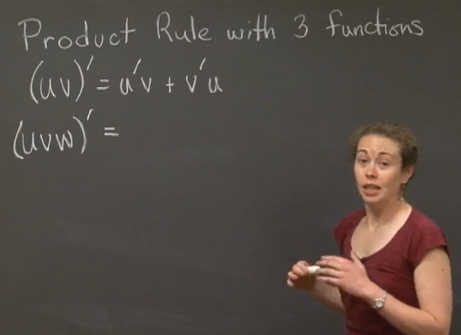 Product Rule with 3 functions
(uv)' = u'v + v'u
(uvw)' =